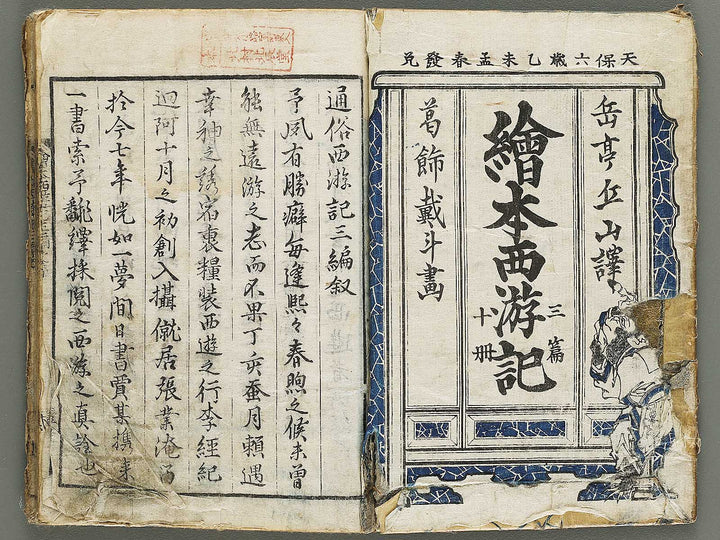 天保六歳乙未孟春發兌
岳亭丘山譯
繪本西游記
三篇
十冊
葛飾戴斗畫
通俗西游記三編叙
予夙有勝癖每逢熙々春煦之候未曽
能無遠游之志而不果丁亥蚕月頼遇
幸神之誘宿裹糧装西遊之行李經紀
迴阿十月之初創入攝僦居張業淹留
於今七年恍如一夢間日書賈某携来
一書索予翻繹採閲之西游之真詮也